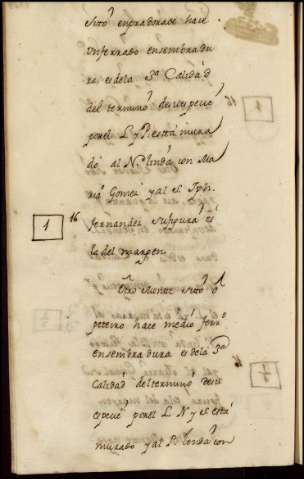 sitto enpradorado hace
un ferrado ensembradu
ra es dela 3ª Calidad
del termino de
por el L y P. está mura
do al N. linda con Ma
ria Gomez y al el S. Pedro
fernandez su figura es
la del margen
1
Otro Monte sitto ô
peteiro hace medio ferrº
ensembradura es dela 3ª
Calidad del termino de es
por el L. N y el está
murado y al P. linda con